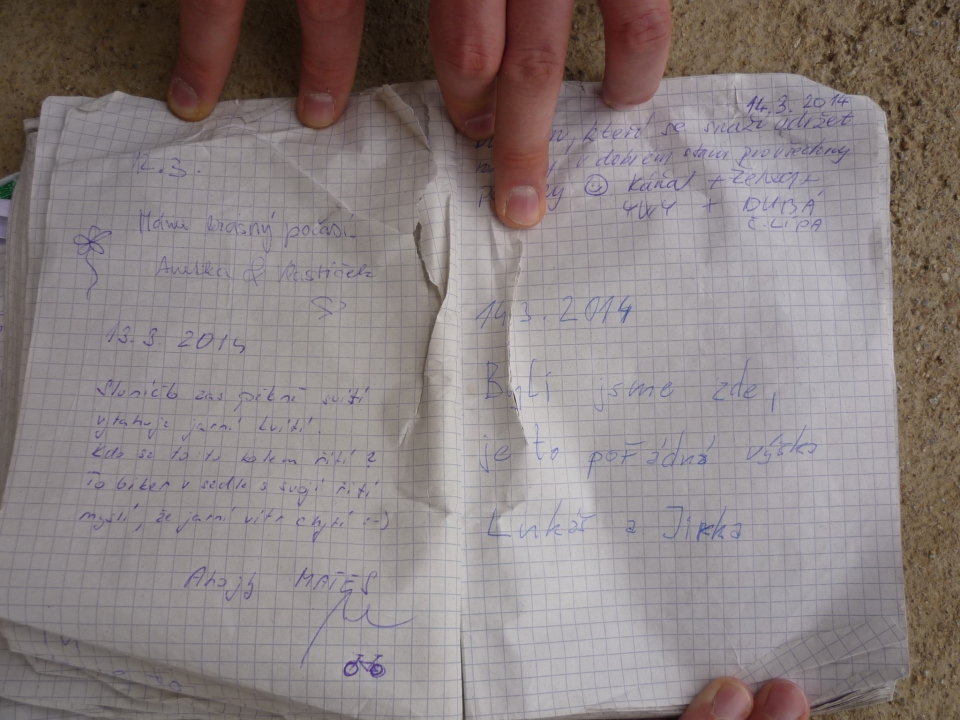 12.3.
Máme krásný počasí.
13.3.2014
Sluníčko zas pěkně svítí
vytahuje jarní kvítí.
Kdo se to tu kolem řítí?
To biker v sedle s svojí řití
myslí, že jarní vítr chytí :-)
Ahojg MATES
14.3.2014
kteří se snaží udržet
v dobrém stavu pro všechny
☺ Káňa + Želva +
4W4 + DUBÁ
Č. LÍPA
14.3.2014
Byli jsme zde,
je to pořádná výška
Lukáš a Jirka